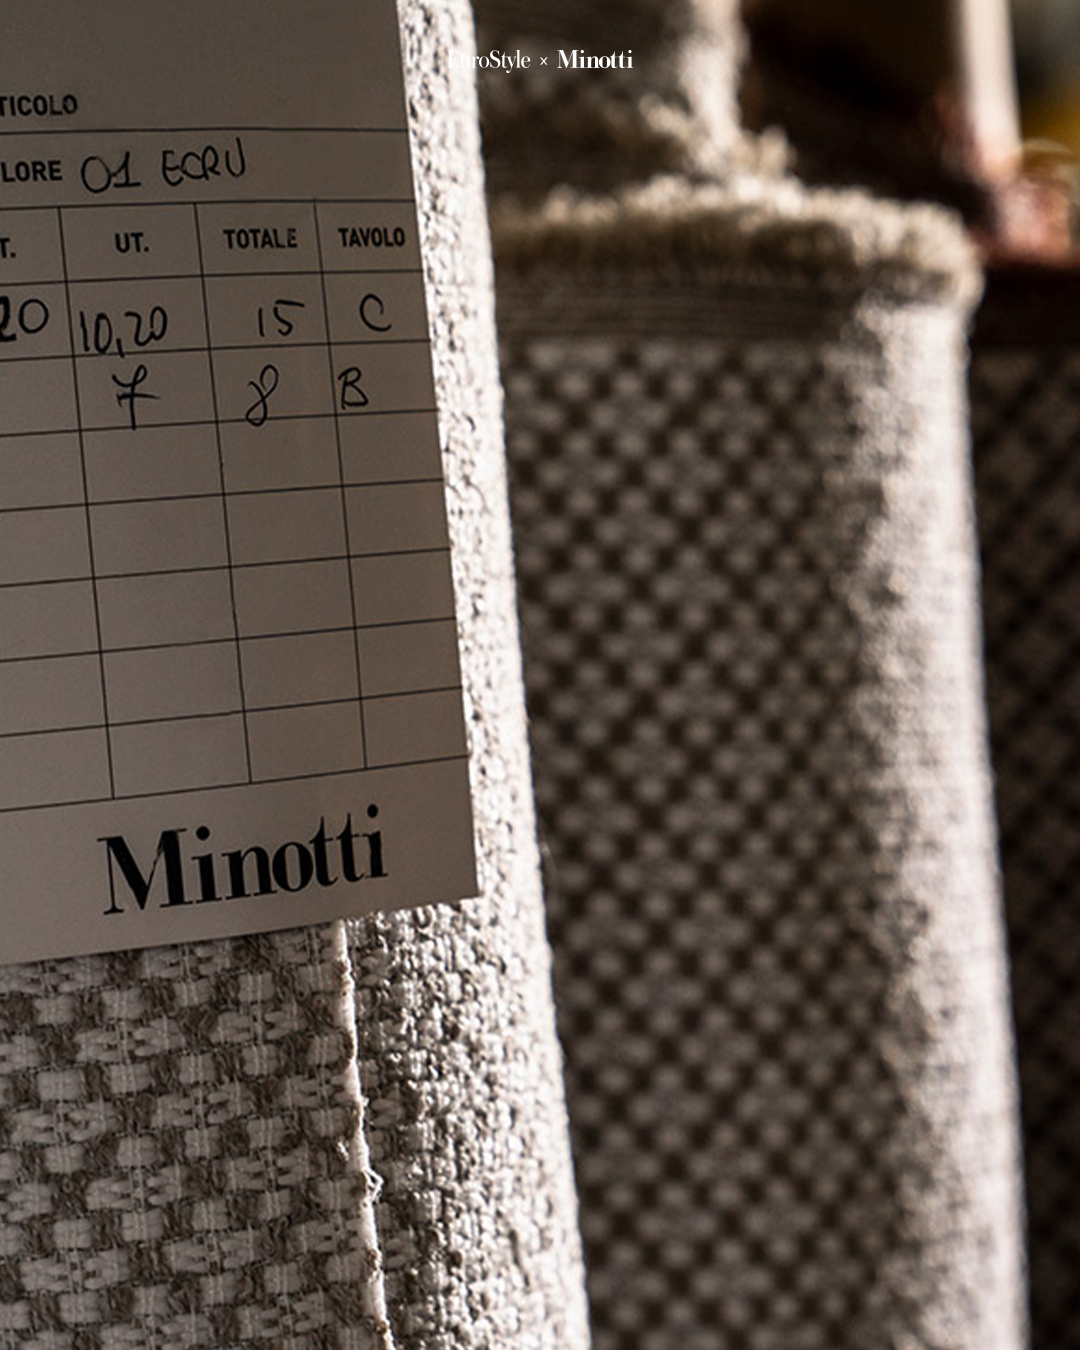 EuroStyle × Minotti
TICOLO
LORE 01 ECRU
T. UT. TOTALE TAVOLO
20 10,20 15 C
7 8 B
Minotti